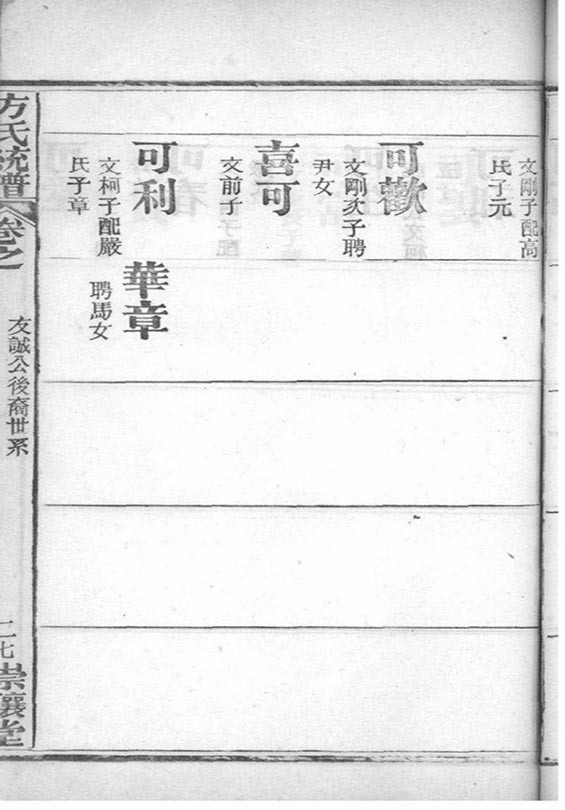 文剛子配高
氏子元
可歡
文剛次子聘
尹女
喜可
文前子
可利
文柯子配嚴
氏子章
華章
聘馬女
方氏統譜
卷之
友誠公後裔世系
二七
崇讓堂